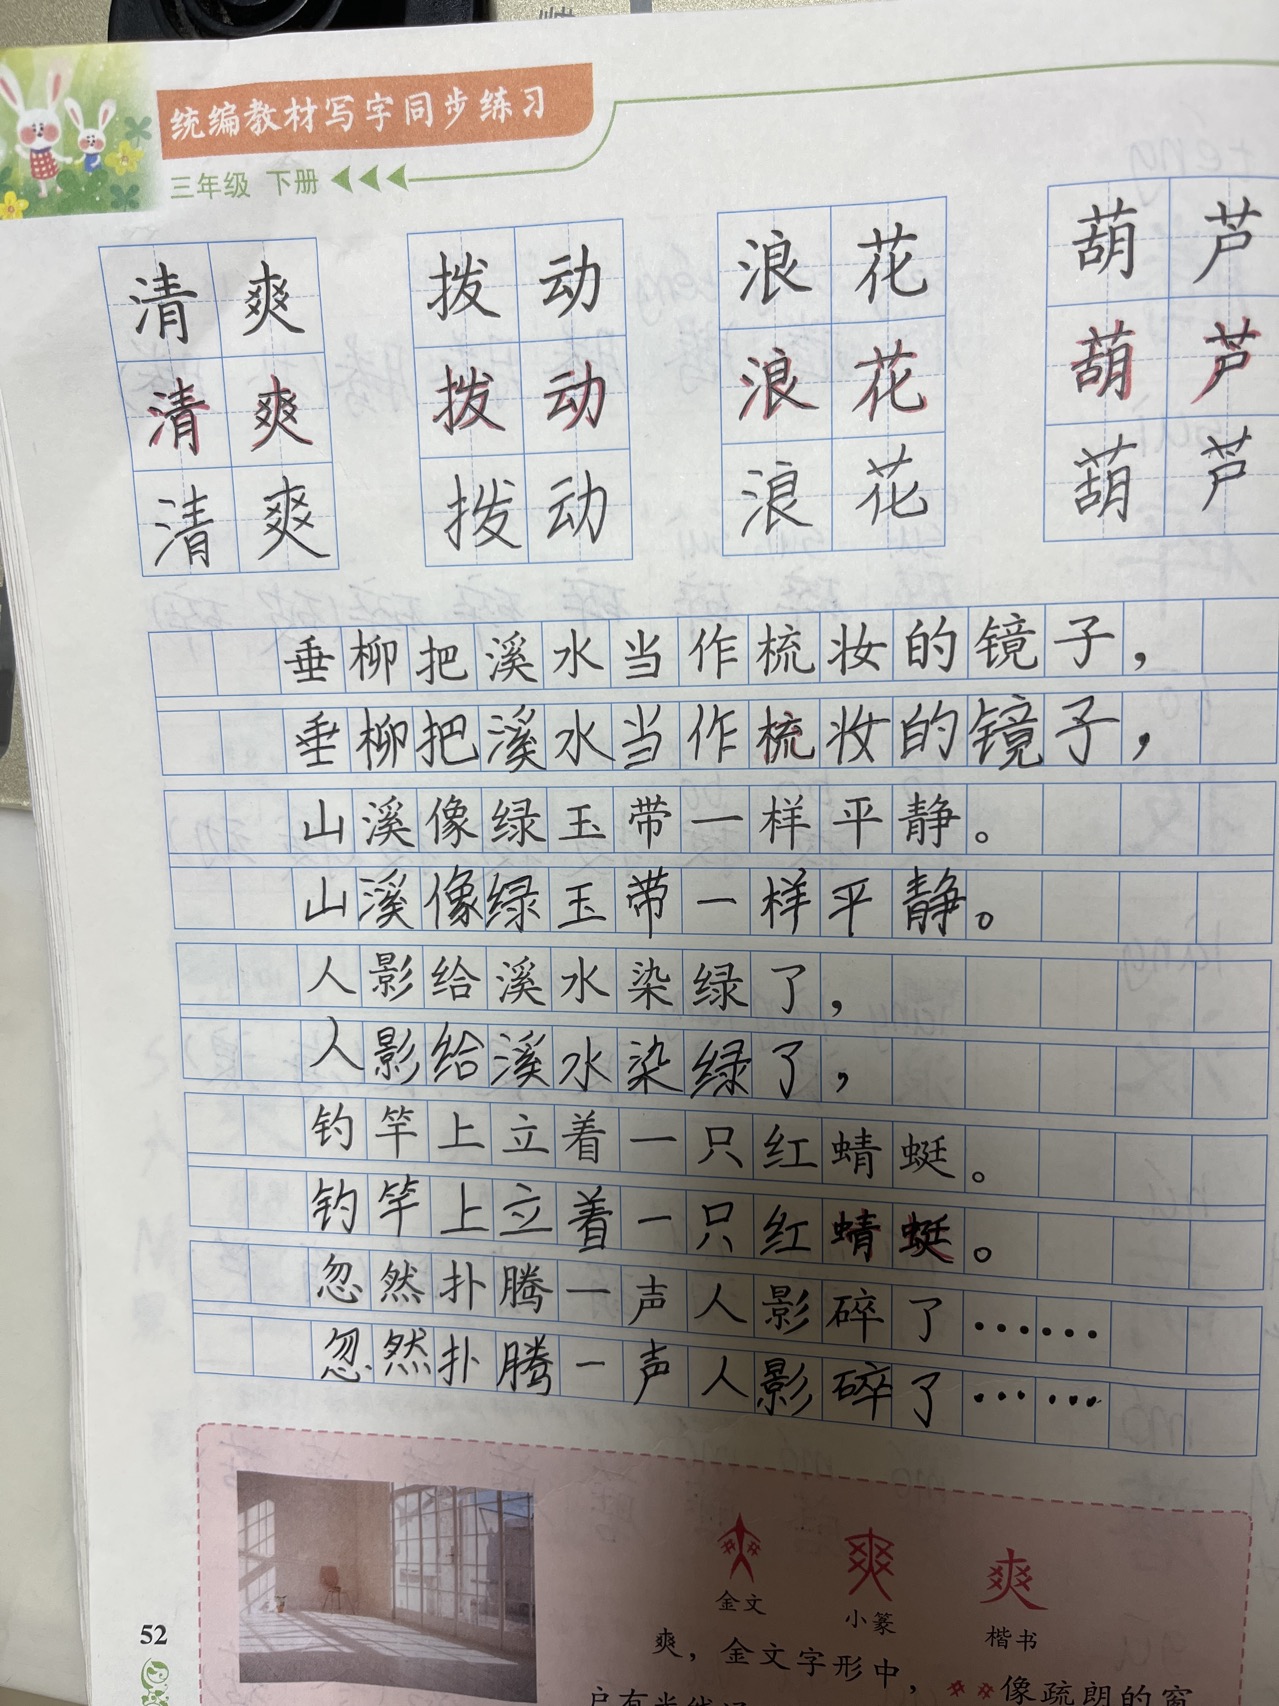 统编教材写字同步练习
三年级 下册
清爽 拨动 浪花 葫芦
清爽 拨动 浪花 葫芦
清爽 拨动 浪花 葫芦
垂柳把溪水当作梳妆的镜子，
垂柳把溪水当作梳妆的镜子，
山溪像绿玉带一样平静。
山溪像绿玉带一样平静。
人影给溪水染绿了，
人影给溪水染绿了，
钓竿上立着一只红蜻蜓。
钓竿上立着一只红蜻蜓。
忽然扑腾一声人影碎了……
忽然扑腾一声人影碎了……
金文 小篆 楷书
爽，金文字形中，像疏朗的窗
52